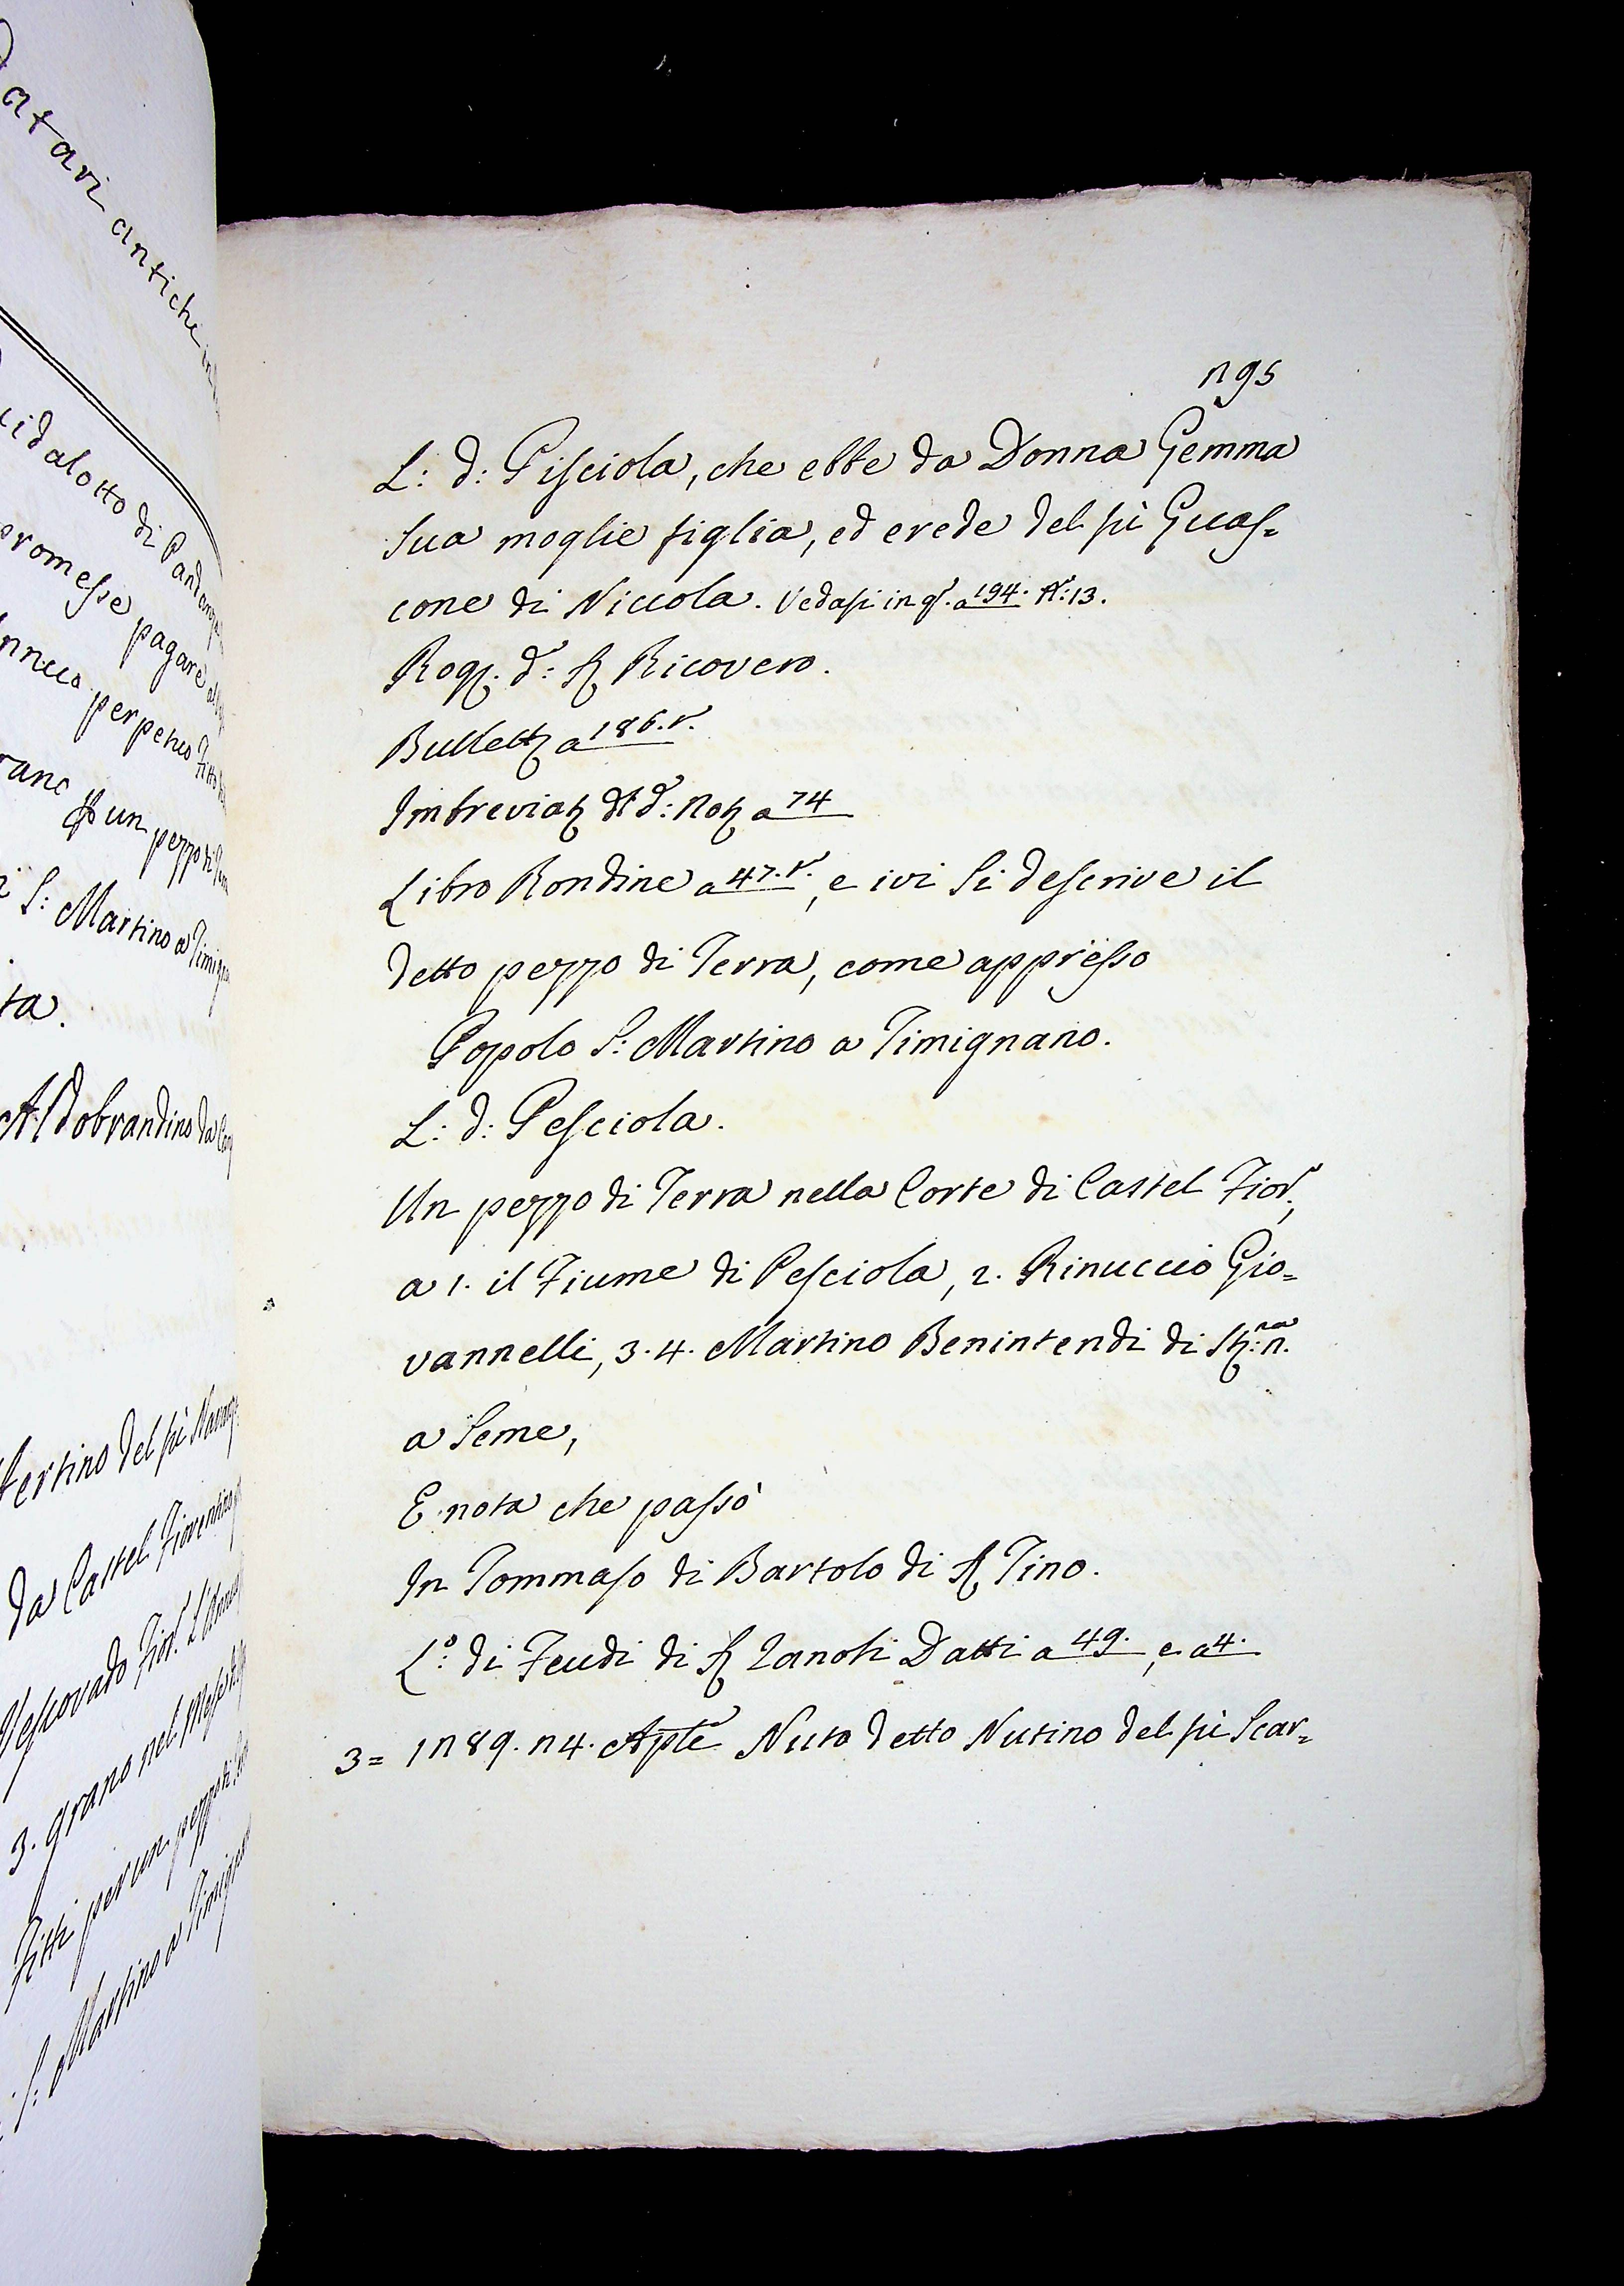 atari antiche in
idalotto di Pandang
promesse pagare al
nnuo perpetuo Fitto
rano p un pezzo di
S: Martino a Timign
ta.
Aldobrandino da
bertino del fù
da Castel Fiorentino
Vescovado Fior.
3. grano nel Mese di
Fitti per un pezzo di
S: Martino a Timign
n95
L: d: Pisciola, che ebbe da Donna Gemma
sua moglie figlia, ed erede del fù Guas=
cone di Niccola. Vedasi in qᵒ. a 194. Nᵒ: 13.
Rogᵒ. dᵒ: Sʳ Ricovero.
Bullettᵉ a 186.tᵒ.
Imbreviatᵉ dl dᵒ: Notᵒ a 74
Libro Rondine a 47.tᵒ., e ivi si descrive il
detto pezzo di Terra, come appresso
Popolo S: Martino a Timignano.
L: d: Pesciola.
Un pezzo di Terra nella Corte di Castel Fiorᵒ.,
a 1. il Fiume di Pesciola, 2. Rinuccio Gio=
vannelli, 3. 4. Martino Benintendi di Stᵃ: n.
a Seme,
E nota che passò
In Tommaso di Bartolo di Sʳ Tino.
Lᵒ: di Feudi di Sʳ Zanobi Datti a 49., e a 4.
3= 1n89. n4. Aplᵉ Nuto detto Nutino del fù Scar=